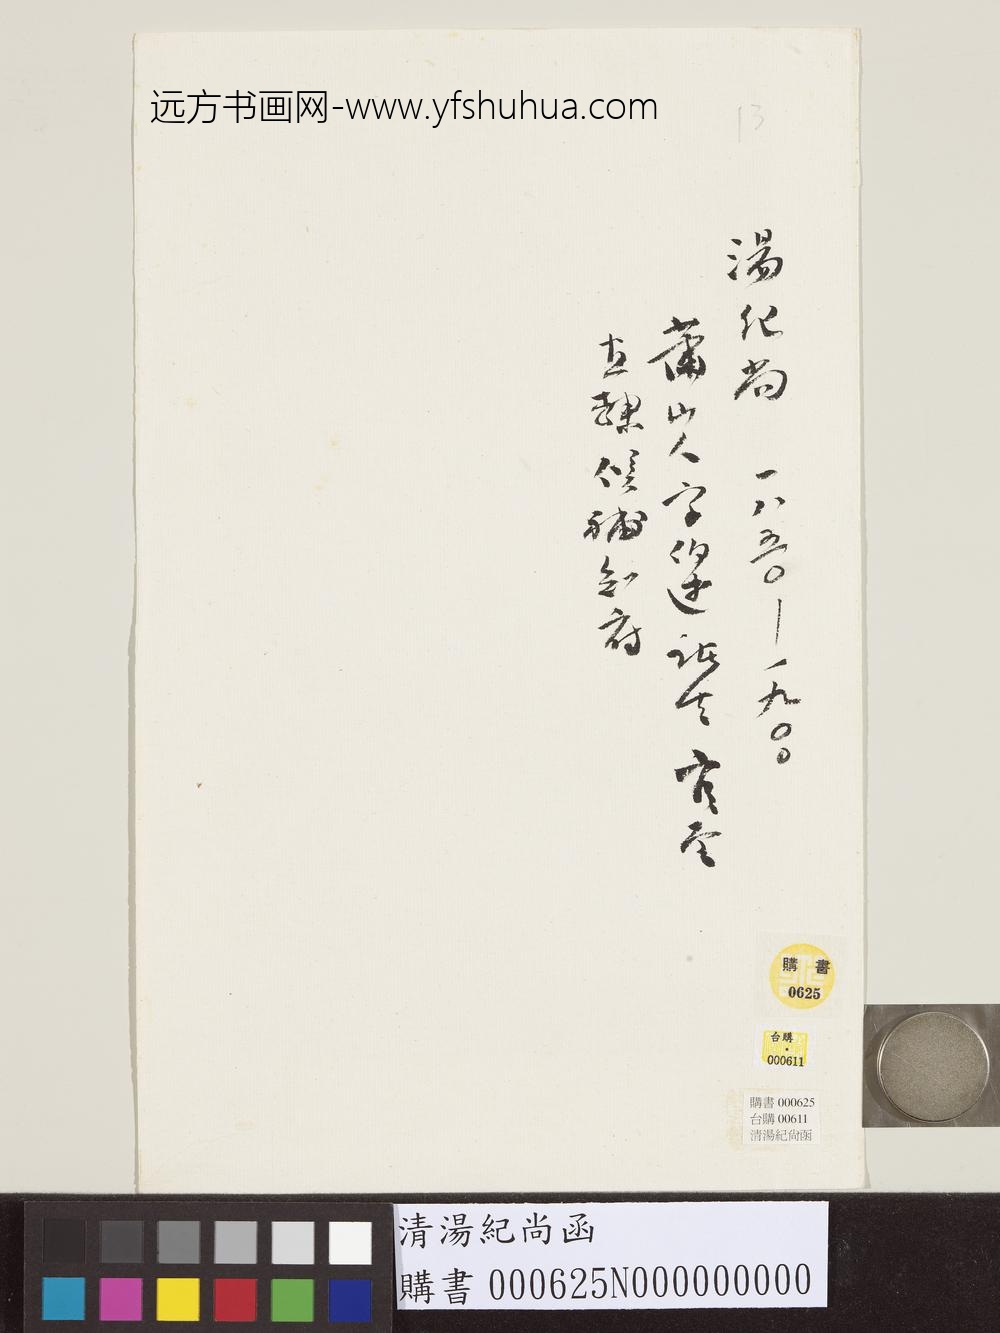 远方书画网-www.yfshuhua.com
13
湯紀尚 一八五〇—一九〇〇
蕭山人字伯述諸生官至
直隸候補知府
購書
0625
台購
000611
購書 000625
台購 00611
清湯紀尙函
清湯紀尚函
購書 000625N000000000